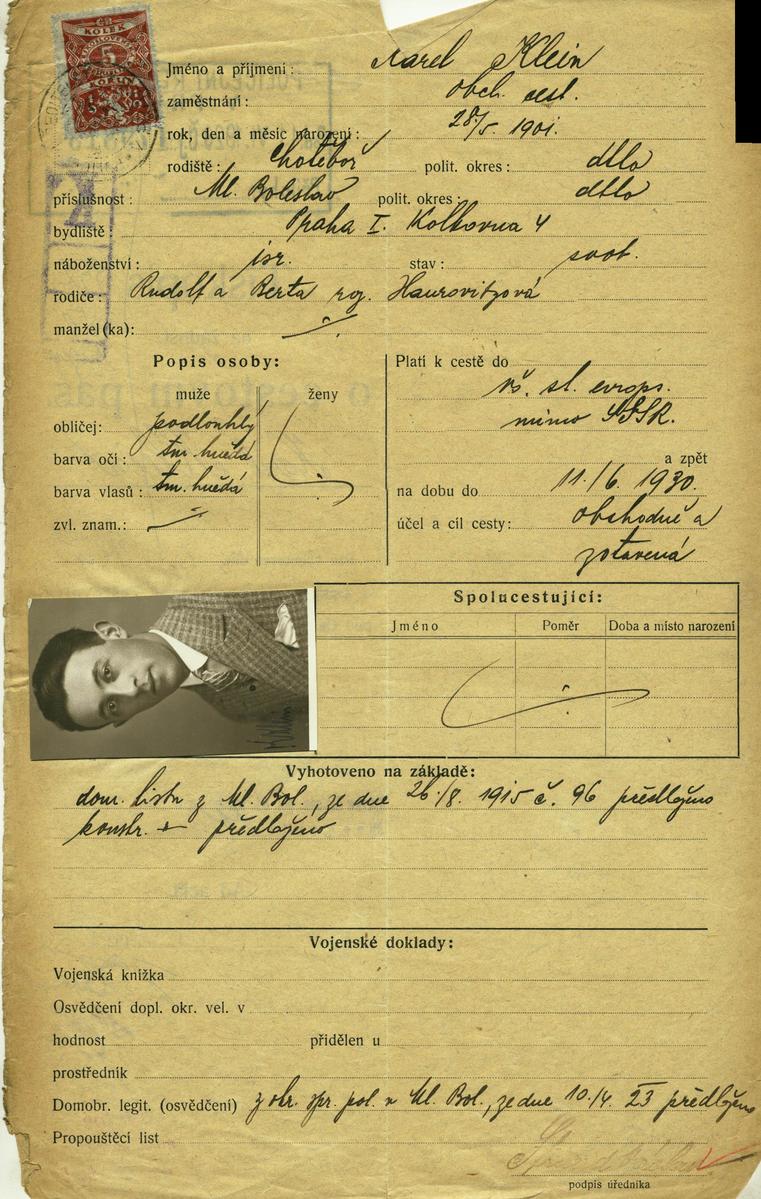 KOLEK
5
KORUN
Jméno a příjmení: Karel Klein
zaměstnání: obch. cest.
rok, den a měsíc narození: 28/5. 1901.
rodiště: Chotěboř polit. okres: dtto
příslušnost: Ml. Boleslav polit. okres: dtto
bydliště: Praha I. Kolkovna 4
náboženství: isr. stav: svob.
rodiče: Rudolf a Berta roz. Haurovitzová
manžel (ka):
Popis osoby:
muže ženy
obličej: podlouhlý
barva očí: tm. hnědá
barva vlasů: tm. hnědá
zvl. znam.:
Platí k cestě do
vš. st. evrops.
mimo SSSR.
a zpět
na dobu do 11./6. 1930.
účel a cíl cesty: obchodně a
zotavená
Spolucestující:
Jméno Poměr Doba a místo narození
KKlein
Vyhotoveno na základě:
dom. listu z Ml. Bol., ze dne 26./8. 1915 č. 96 předloženo
předloženo
Vojenské doklady:
Vojenská knížka
Osvědčení dopl. okr. vel. v
hodnost přidělen u
prostředník
Domobr. legit. (osvědčení) z okr. spr. pol. v Ml. Bol., ze dne 10./4. 23 předloženo
Propouštěcí list
podpis úředníka